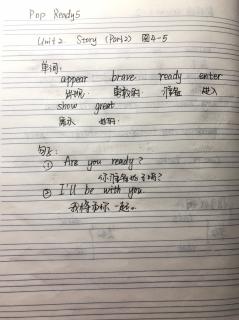 Pop Ready5
Unit2 Story (Part2) 图4-5
单词:
appear brave ready enter
出现 勇敢的 准备 进入
show great
展示
句子:
① Are you ready?
你准备好了吗?
② I'll be with you.
我将和你一起。